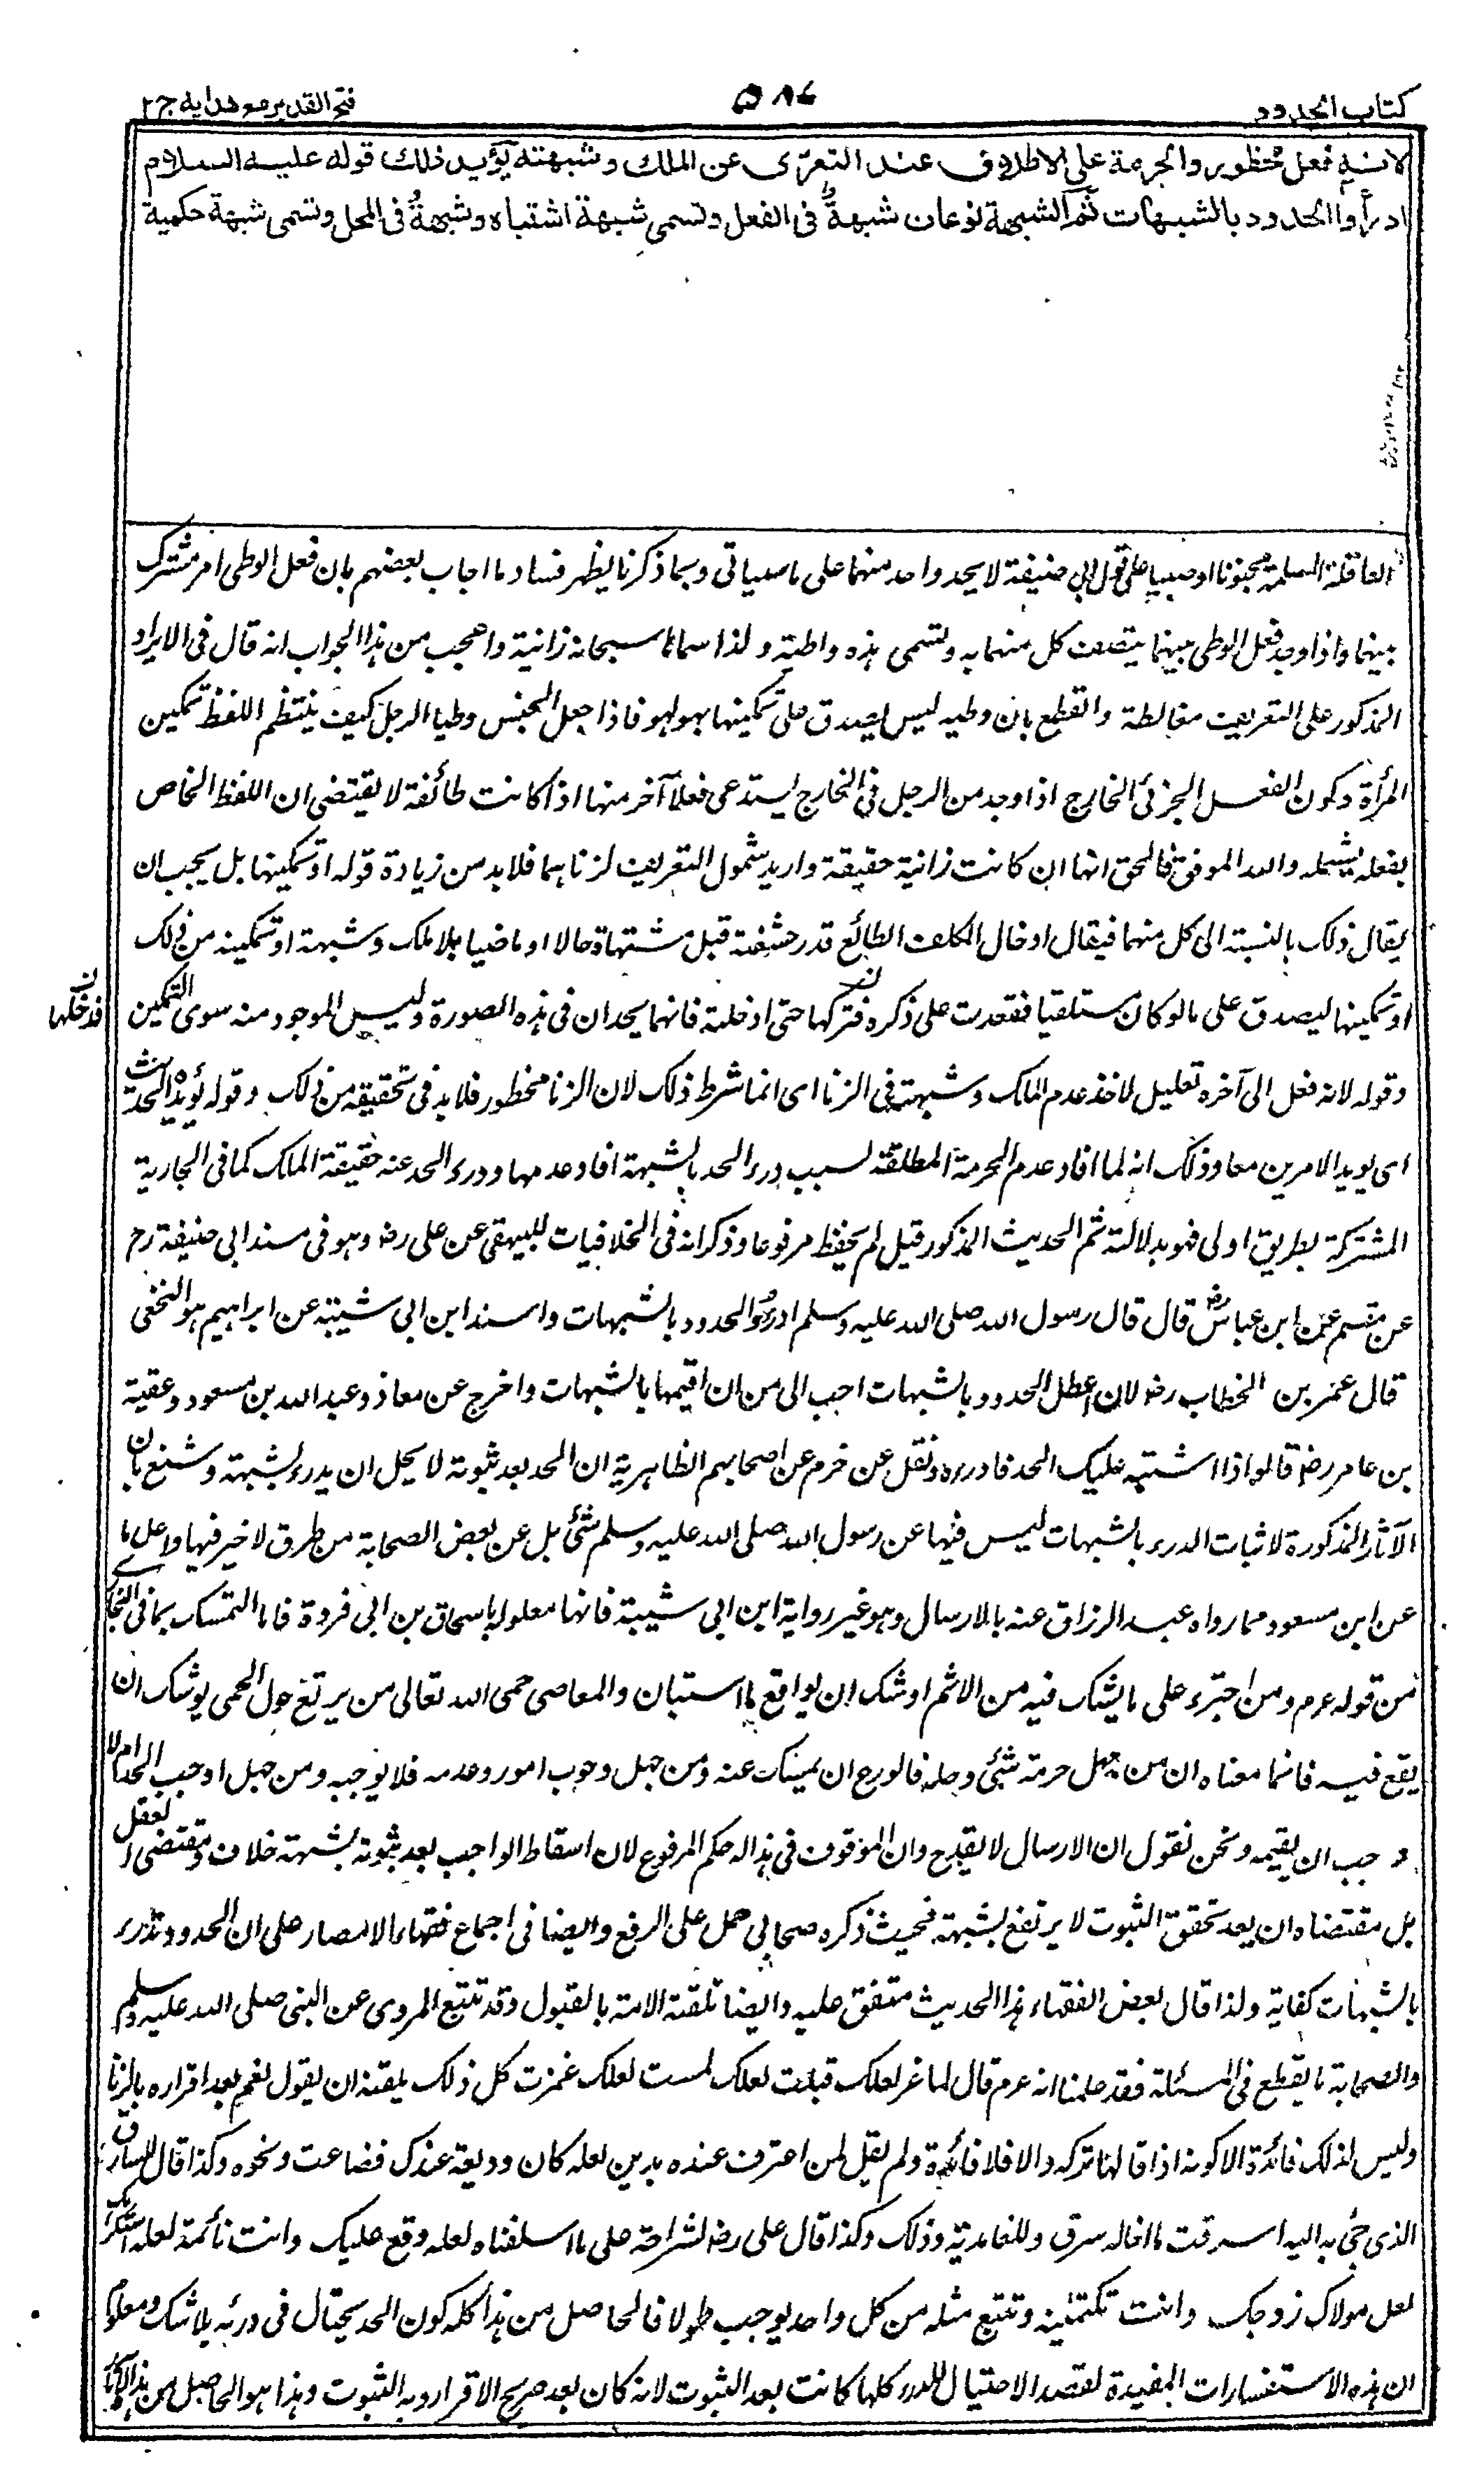 كتاب الحدود
٥٨٤
فتح القدير مع هدايه ج ٢
لانه فعل محظور والحرمة على الاطلاق عند التعرى عن الملك وشبهته يؤيد ذلك قوله عليه السلام
ادرأوا الحدود بالشبهات ثم الشبهة نوعان شبهة فى الفعل وتسمى شبهة اشتباه وشبهة فى المحل وتسمى شبهة حكمية
العاقلة المسلمة مجنونا او صبيا على قول ابى حنيفة لا يحد واحد منهما على ما سياتى وبما ذكرنا يظهر فساد ما اجاب بعضهم بان فعل الوطى امر مشترك
بينهما واذا وجد فعل الوطى بينهما يتصف كل منهما به وتسمى هذه واطية ولذا سماها سبحانه زانية واعجب من هذا الجواب انه قال فى الايراد
المذكور على التعريف مغالطة والقطع بان وطيه ليس يصدق على تمكينها بهو لهو فاذا جعل الجنس وطيا الرجل كيف ينتظم اللفظ تمكين
المرأة وكون الفعل الجزئى الخارج اذا وجد من الرجل فى الخارج يستدعى فعلا آخر منها اذا كانت طائفة لا يقتضى ان اللفظ الخاص
بفعله يشمله والله الموفق فالحق انها ان كانت زانية حقيقة واريد شمول التعريف لزناهما فلا بد من زيادة قوله او تمكينها بل يجب ان
يقال ذلك بالنسبة الى كل منهما فيقال ادخال المكلف الطائع قدر حشفته قبل مشتهاة حالا او ماضيا بلا ملك وشبهة او تمكينه من ذلك
او تمكينها ليصدق على ما لو كان مستلقيا فقعدت على ذكره فتركها حتى ادخلته فانهما يحدان فى هذه الصورة وليس الموجود منه سوى التمكين
وقوله لانه فعل الى آخره تعليل لاخذ عدم الملك وشبهته فى الزنا اى انما شرط ذلك لان الزنا محظور فلا بد فى تحقيقه من ذلك وقوله يؤيده الحديث
اى يويد الامرين معا وذلك انه لما افاد عدم الحرمة المطلقة لسبب درء الحد بالشبهة افاد عدمها ودرء الحد عنه حقيقة الملك كما فى الجارية
المشتركة بطريق اولى فهو بدلالته ثم الحديث المذكور قيل لم يحفظ مرفوعا وذكر انه فى الخلافيات للبيهقى عن على رض وهو فى مسند ابى حنيفة رح
عن مقسم عن ابن عباس رض قال قال رسول الله صلى الله عليه وسلم ادرؤا الحدود بالشبهات واسند ابن ابى شيبة عن ابراهيم هو النخعى
قال عمر بن الخطاب رض لان اعطل الحدود بالشبهات احب الى من ان اقيمها بالشبهات واخرج عن معاذ وعبد الله بن مسعود وعقبة
بن عامر رض قالوا اذا اشتبه عليك الحد فادرءه ونقل عن حزم عن اصحابهم الظاهرية ان الحد بعد ثبوته لا يحل ان يدرء بشبهة وشنع بان
الآثار المذكورة لاثبات الدرء بالشبهات ليس فيها عن رسول الله صلى الله عليه وسلم شئ بل عن بعض الصحابة من طرق لا خير فيها واعل ما
عن ابن مسعود مما رواه عبد الرزاق عنه بالارسال وهو غير رواية ابن ابى شيبة فانها معلولة باسحاق بن ابى فروة فاما التمسك بما فى البخارى
من قوله عم ومن اجترء على ما يشك فيه من الاثم اوشك ان يواقع ما استبان والمعاصى حمى الله تعالى من يرتع حول الحمى يوشك ان
يقع فيه فانما معناه ان من جهل حرمة شئ وحله فالورع ان يمسك عنه ومن جهل وجوب امور وعدمه فلا يوجبه ومن جهل اوجب الحد ام لا
وجب ان يقيمه ونحن نقول ان الارسال لا يقدح وان الموقوف فى هذا له حكم المرفوع لان اسقاط الواجب بعد ثبوته بشبهة خلاف مقتضى العقل
بل مقتضاه ان بعد تحقق الثبوت لا يرتفع بشبهة فحيث ذكره صحابى حمل على الرفع وايضا فى اجماع فقهاء الامصار على ان الحدود تدرء
بالشبهات كفاية ولذا قال بعض الفقهاء هذا الحديث متفق عليه وايضا تلقته الامة بالقبول وقد تتبع المروى عن النبى صلى الله عليه وسلم
والصحابة ما يقطع فى المسئلة فقد علمنا انه عم قال لماعز لعلك قبلت لعلك لمست لعلك غمزت كل ذلك يلقنه ان يقول نعم بعد اقراره بالزنا
وليس لذلك فائدة الا كونه اذا قالها تركه والا فلا فائدة ولم يقل لمن اعترف عنده بدين لعله كان وديعة عندك فضاعت ونحوه وكذا قال للسارق
الذى جئ به اليه اسرقت ما اخاله سرق وللغامدية وذلك وكذا قال على رض لشراحة على ما اسلفناه لعله وقع عليك وانت نائمة لعله استكرهك
لعل مولاك زوجك وانت تكتمينه وتتبع مثله من كل واحد يوجب طولا فالحاصل من هذا كله كون الحد يحتال فى درئه بلا شك ومعلوم
ان هذه الاستفسارات المفيدة لقصد الاحتيال للدرء كلها كانت بعد الثبوت لانه كان بعد صريح الاقرار وبه الثبوت وهذا هو الحاصل من هذه